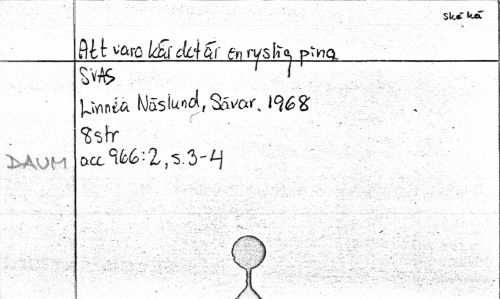 Ska kä
Att vara kär det är en ryslig pina
SVAS
Linnéa Näslund, Sävar. 1968
8str
DAUM acc 966:2, s.3-4